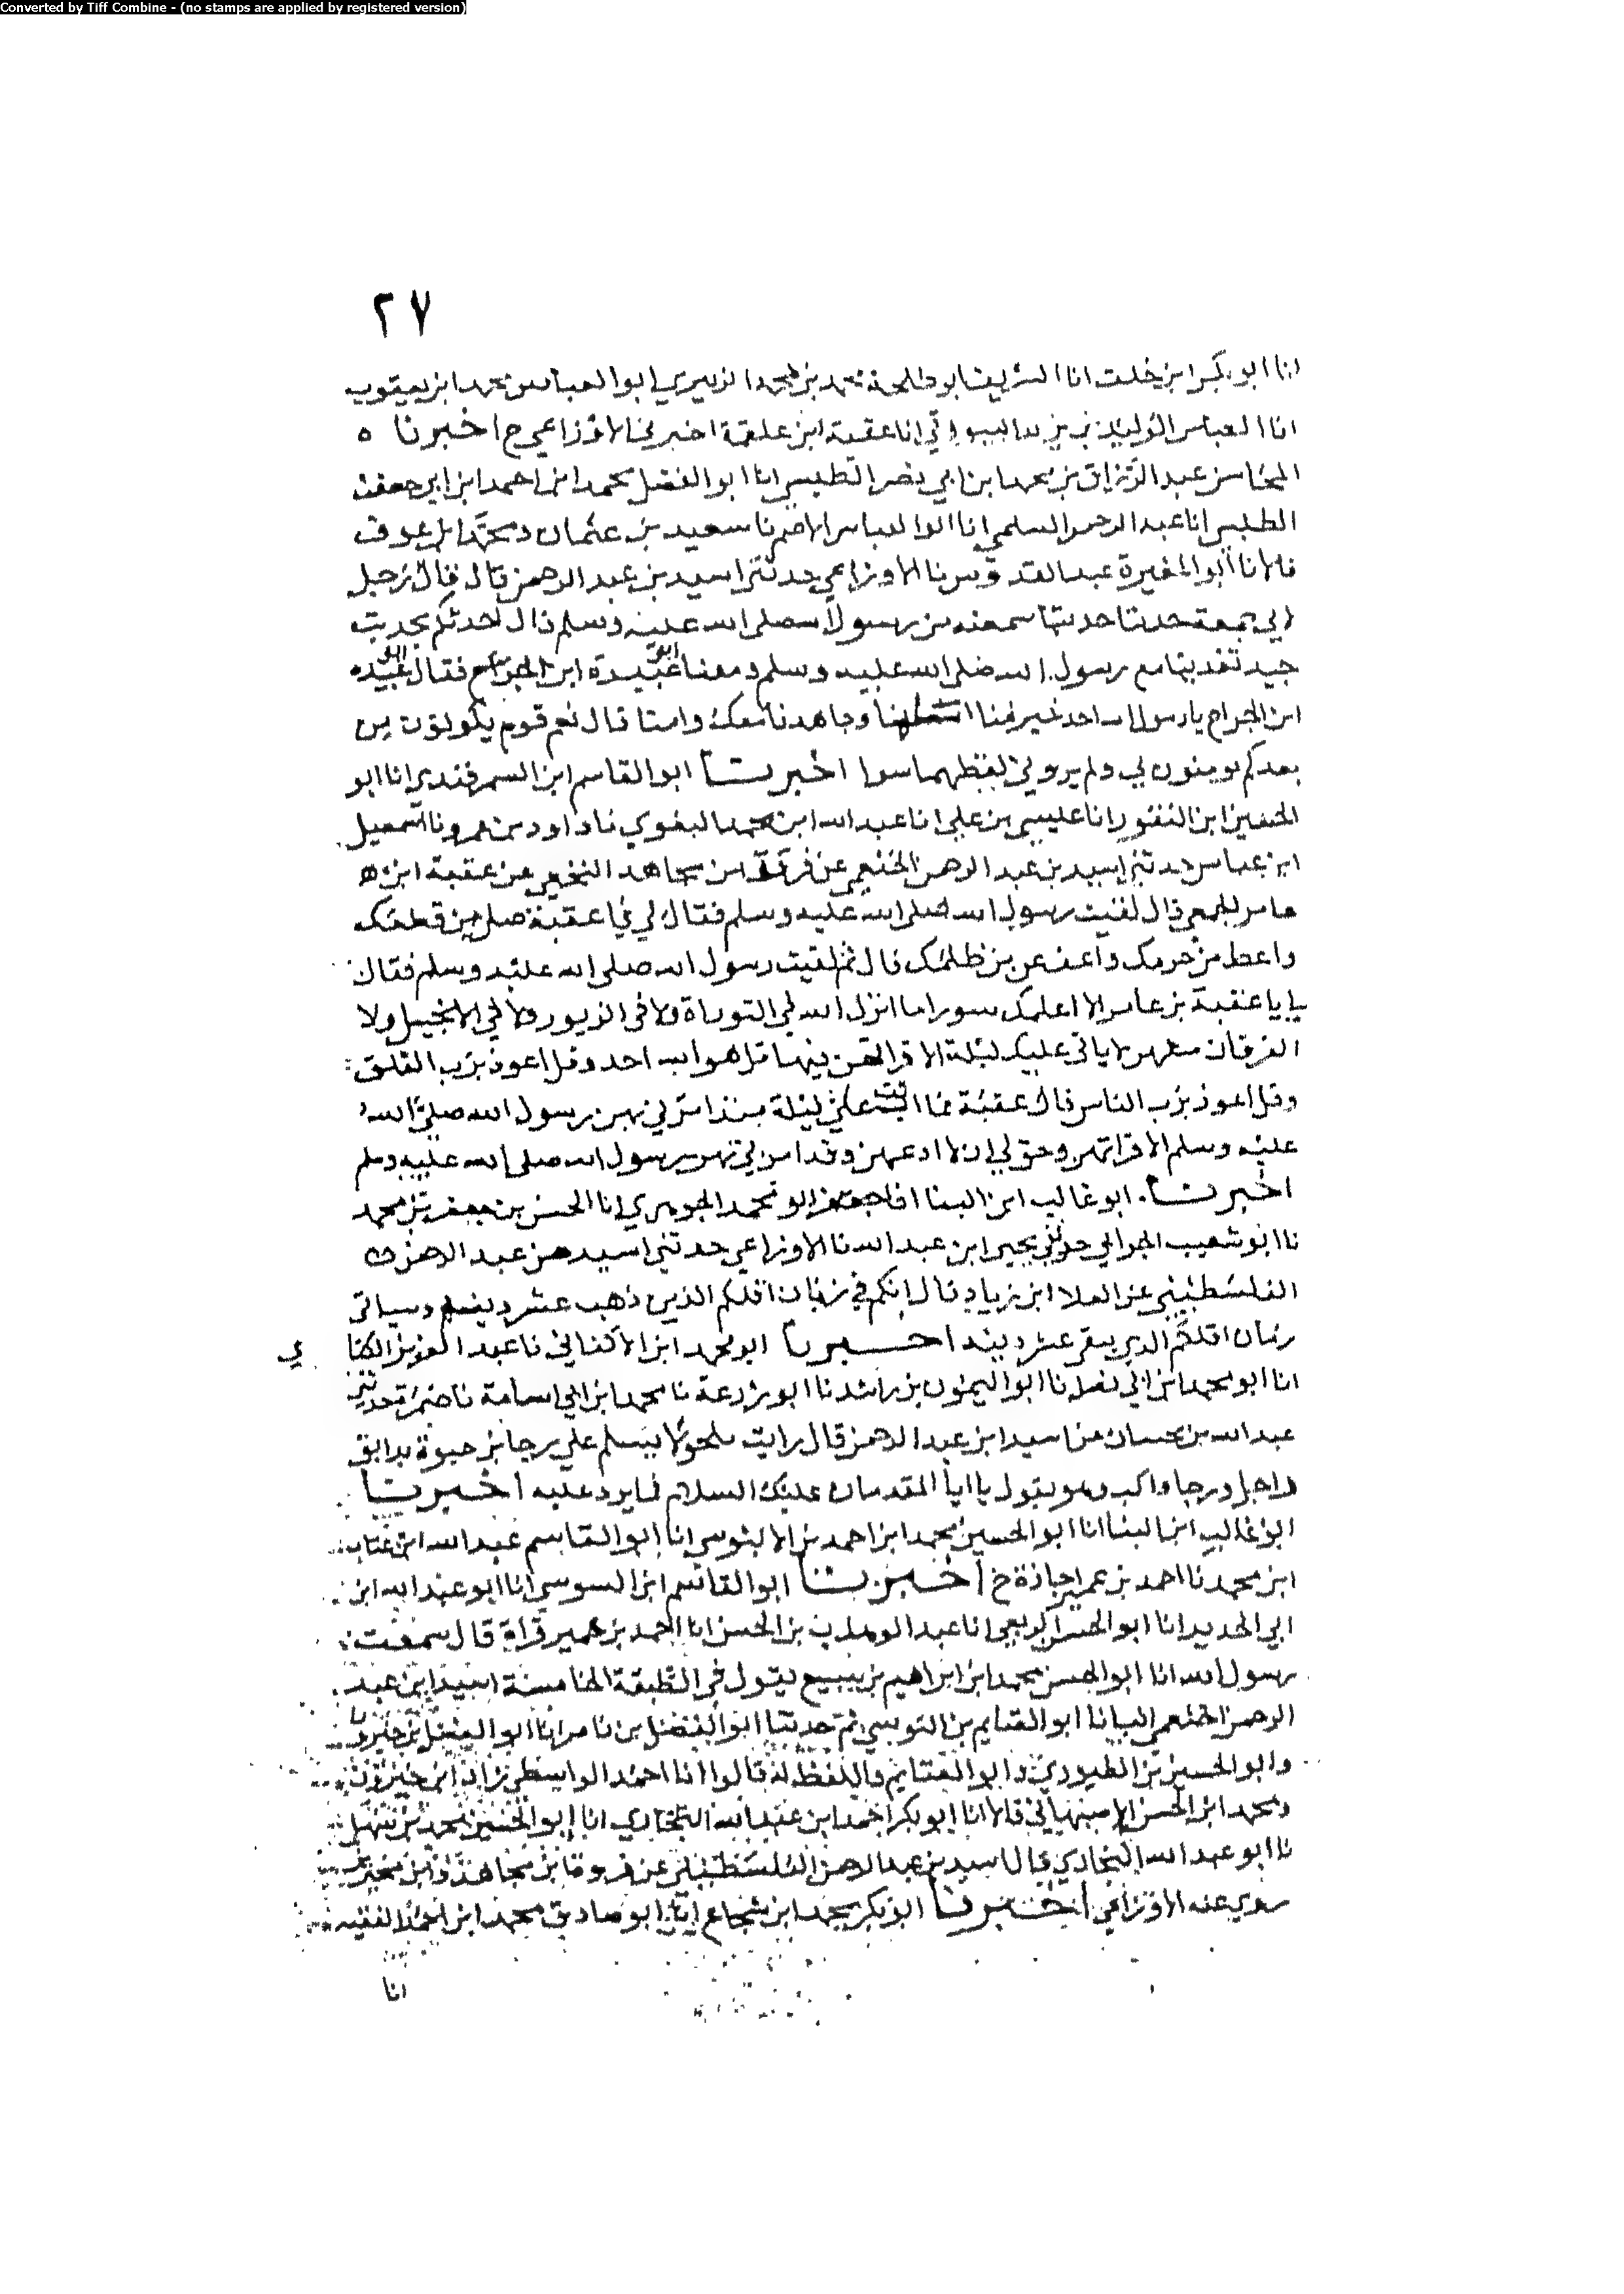 Converted by Tiff Combine - (no stamps are applied by registered version)
٢٧
انا ابو بكر ابن خلف انا الشريف ابو طلحة محمد بن محمد الزبيري ابو العباس محمد ابن يعقوب
انا العباس الوليد بن البيروتي انا عقبة ابن علقمة اخبرني الاوزاعي ح اخبرنا ه
المحاسن عبد الرزاق بن محمد ابن ابي نصر الطبسي انا ابو الفضل محمد ابن احمد ابن ابي جعفر
الطبسي انا عبد الرحمن السلمي انا ابو العباس الاصم نا سعيد بن عثمان ومحمد بن عوف
قالا نا ابو المغيرة عبد القدوس نا الاوزاعي حدثني اسيد بن عبد الرحمن قال قال رجل
لابي جمعة حدثنا حديثا سمعته من رسول الله صلى الله عليه وسلم قال احدثكم بحديث
جيد تغدينا مع رسول الله صلى الله عليه وسلم ومعنا ابو عبيدة ابن الجراح فقال ابو عبيده
ابن الجراح يا رسول الله احد خير منا اسلمنا وجاهدنا معك وامنا قال نعم قوم يكونون من
بعدكم يومنون بي ولم يروني لفظهما سوا اخبرنا ابو القاسم ابن السمرقندي انا ابو
الحسين ابن النقور انا عيسى بن علي انا عبد الله ابن محمد البغوي نا داود بن عمرو نا اسمعيل
ابن عباس حدثني اسيد بن عبد الرحمن الخثعمي عن فروة ابن مجاهد النخعي عن عقبة ابن ه
عامر الجمعي قال لقيت رسول الله صلى الله عليه وسلم فقال لي يا عقبة صل من قطعك
واعط من حرمك واعف عن من ظلمك قال ثم لقيت رسول الله صلى الله عليه وسلم فقال
يا يا عقبة بن عامر الا اعلمك سورا ما انزل الله في التوراة ولا في الزبور ولا في الانجيل ولا
الفرقان مثلهن لا ياتي عليك ليلة الا قراتهن فيها قل هو الله احد وقل اعوذ برب الفلق
وقل اعوذ برب الناس قال عقبة فما اتت علي ليلة منذ امرني بهن رسول الله صلى الله
عليه وسلم الا قراتهن وحق لي ان لا ادعهن وقد امرني بهن رسول الله صلى الله عليه وسلم
اخبرنا ابو غالب ابن البنا انا ابو محمد الجوهري انا الحسن بن جعفر بن محمد
نا ابو شعيب الحراني حدثني يحيى ابن عبد الله نا الاوزاعي حدثني اسيد بن عبد الرحمن
الفلسطيني عن العلا ابن زياد قال انكم في زمان اقلكم الذي ذهب عشر دينه وسياتي
زمان اقلكم الذي يبقى عشر دينه اخبرنا ابو محمد ابن الاكفاني نا عبد العزيز الكتاني
انا ابو محمد ابن ابي نصر نا ابو الميمون بن راشد نا ابو زرعة نا محمد ابن ابي اسامة نا ضمرة حدثني
عبد الله بن حسان عن اسيد ابن عبد الرحمن قال رايت مكحولا يسلم على رجا بن حيوة بدابق
راجل ورجا راكب وهو يقول يا ابا المقدمان عليك السلام فما يرد عليه اخبرنا
ابو غالب ابن البنا انا ابو الحسين محمد ابن احمد بن الابنوسي انا ابو القاسم عبد الله ابن عتاب
ابن محمد نا احمد بن عمير اجازة ح اخبرنا ابو القاسم ابن السوسي انا ابو عبد الله ابن
ابي الحديد انا ابو الحسن الربعي انا عبد الوهاب بن الحسن انا احمد بن عمير قراة قال سمعت
رسول الله انا ابو الحسن محمد ابن ابراهيم بن سميع يقول في الطبقة الخامسة اسيد ابن عبد
الرحمن الخثعمي انبانا ابو الغنايم بن النرسي ثم حدثنا ابو الفضل بن ناصر انا ابو الفضل بن خيرون
وابو الحسين بن الطيوري وابو الغنايم واللفظ له قالوا انا احمد الواسطي زاد ابن خيرون
ومحمد ابن الحسن الاصبهاني قالا انا ابو بكر احمد ابن عبد الله البخاري انا ابو الحسين محمد بن سهل
نا ابو عبد الله البخاري قال اسيد بن عبد الرحمن الفلسطيني عن فروة ابن مجاهد وابن محيريز
روى عنه الاوزاعي اخبرنا ابو بكر محمد ابن شجاع انا ابو صادق محمد ابن احمد الفقيه
انا